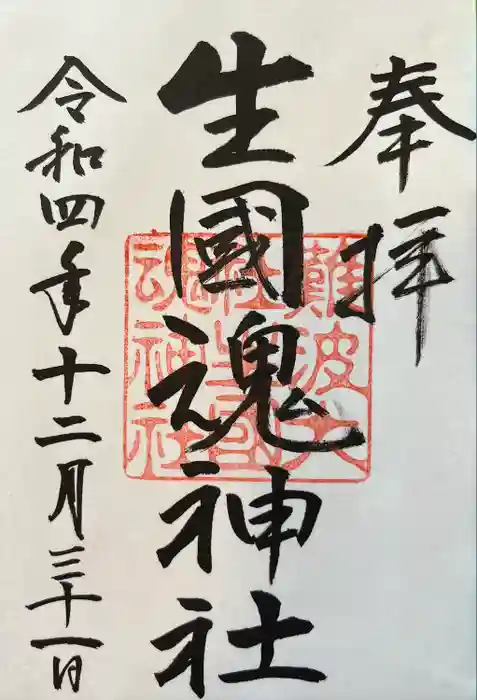 奉拝
生國魂神社
令和四年十二月三十一日
難波大
社生國
魂神社